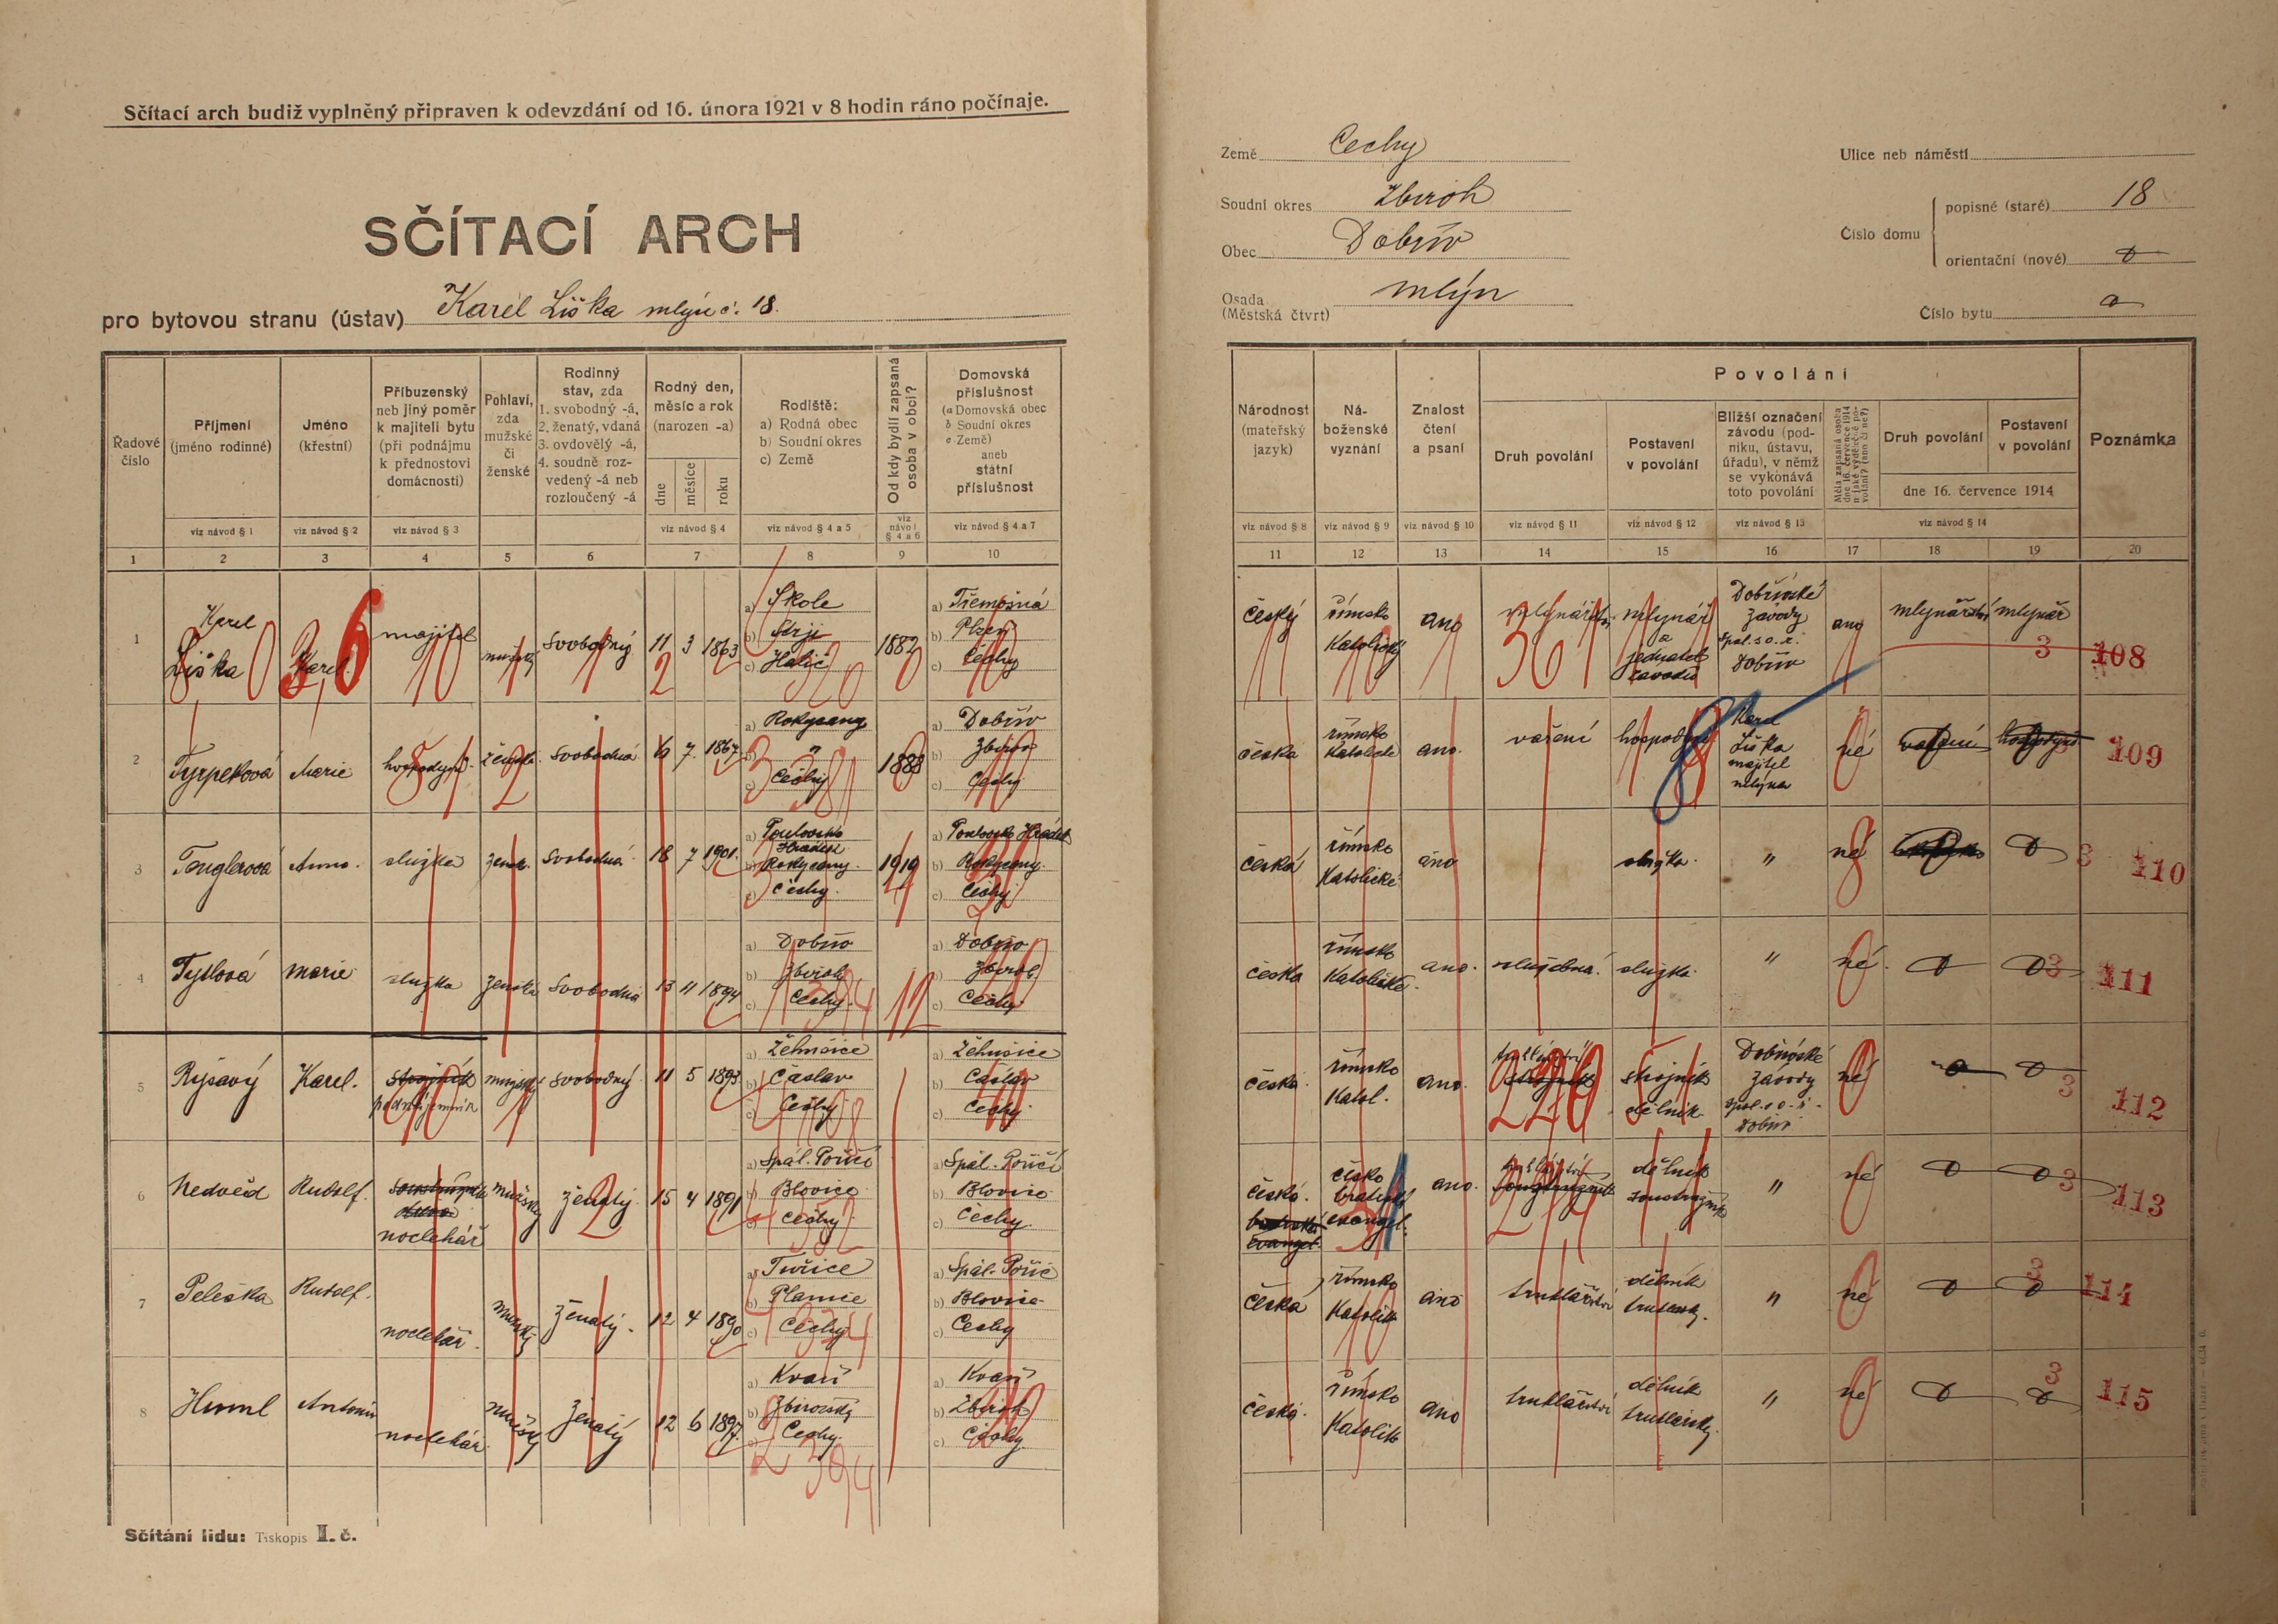 Sčítací arch budiž vyplněný připraven k odevzdání od 16. února 1921 v 8 hodin ráno počínaje.
SČÍTACÍ ARCH
pro bytovou stranu (ústav) Karel Liška mlýn č. 18.
Země Čechy
Soudní okres Zbiroh
Obec Dobřív
Osada mlýn
(Městská čtvrt)
Ulice neb náměstí
Číslo domu
popisné (staré) 18
orientační (nové) 0
Číslo bytu 0
Řadové číslo
Příjmení (jméno rodinné)
Jméno (křestní)
Příbuzenský neb jiný poměr k majiteli bytu (při podnájmu k přednostovi domácnosti)
Pohlaví, zda mužské či ženské
Rodinný stav, zda 1. svobodný -á, 2. ženatý, vdaná 3. ovdovělý -á, 4. soudně rozvedený -á neb rozloučený -á
Rodný den, měsíc a rok (narozen -a)
dne měsíce roku
Rodiště: a) Rodná obec b) Soudní okres c) Země
Od kdy bydlí zapsaná osoba v obci?
Domovská příslušnost (a Domovská obec b Soudní okres c Země) aneb státní příslušnost
Národnost (mateřský jazyk)
Náboženské vyznání
Znalost čtení a psaní
Povolání
Druh povolání
Postavení v povolání
Bližší označení závodu (podniku, ústavu, úřadu), v němž se vykonává toto povolání
Měla zapsaná osoba dne 16. července 1914 nějaké výdělečné povolání? (ano či ne?)
Druh povolání
Postavení v povolání
dne 16. července 1914
Poznámka
viz návod § 1 viz návod § 2 viz návod § 3 viz návod § 4 viz návod § 4 a 5 viz návod § 4 a 6 viz návod § 4 a 7
viz návod § 8 viz návod § 9 viz návod § 10 viz návod § 11 viz návod § 12 viz návod § 13 viz návod § 14
1 2 3 4 5 6 7 8 9 10
11 12 13 14 15 16 17 18 19 20
1 Karel Liška Karel majitel mužský svobodný 11 3 1863 a) Skole b) Stryj c) Halič 1882 a) Třemošná b) Plzeň c) Čechy
český římsko katolický ano mlynářství mlynář a jednatel závodu Dobřívské závody spol. s o. r. Dobřív ano mlynářství mlynář 3 108
2 Tyrpeklová Marie hospodyně ženská svobodná 6 7 1867 a) Rokycany b) " c) Čechy 1888 a) Dobřív b) Zbiroh c) Čechy
česká římsko katolické ano. vaření hospodyně Karel Liška majitel mlýna né vaření hospodyně 109
3 Tauglerová Anna. služka žensk. svobodná 18 7 1901. a) Hrádek b) Rokycany. c) Čechy. 1919 a) Hrádek b) Rokycany. c) Čechy
česká římsko katolické áno služka. " né 0 3 110
4 Tytlová Marie služka ženská svobodná 13 11 1894 a) Dobřív b) Zbiroh c) Čechy. a) Dobřív b) Zbiroh. c) Čechy.
česká římsko katolické. ano. služebná. služka. " né. 0 0 3 111
5 Ryšavý Karel. strojník podnájemník mužský svobodný 11 5 1893. a) Žehušice b) Čáslav c) Čechy. a) Žehušice b) Čáslav c) Čechy.
česká. římsko katol. ano. truhlářství strojník strojník dělník. Dobřívské závody spol. s o. r. Dobřív né 0 0 3 112
6 Nedvěd Rudolf. noclehář mužský ženatý. 15 4 1891 a) Spál. Poříčí b) Blovice c) Čechy a) Spál. Poříčí b) Blovice c) Čechy.
česká. česko bratrské evangel. ano. truhlářství soustružník dělník soustružník " né 0 0 3 113
7 Peleška Rudolf. noclehář. mužský ženatý. 12 4 1890 a) Tuřice b) Planice c) Čechy a) Spál. Poříč b) Blovice c) Čechy
česká římsko katolík ano truhlářství dělník truhlářský. " né 0 0 3 114
8 Huml Antonín noclehář. mužský ženatý 12 6 1897. a) Kvaň b) Zbirožský c) Čechy. a) Kvaň b) Zbiroh c) Čechy.
česká. římsko katolík ano truhlářství dělník truhlářský. " né 0 0 3 115
Sčítání lidu: Tiskopis II. č.